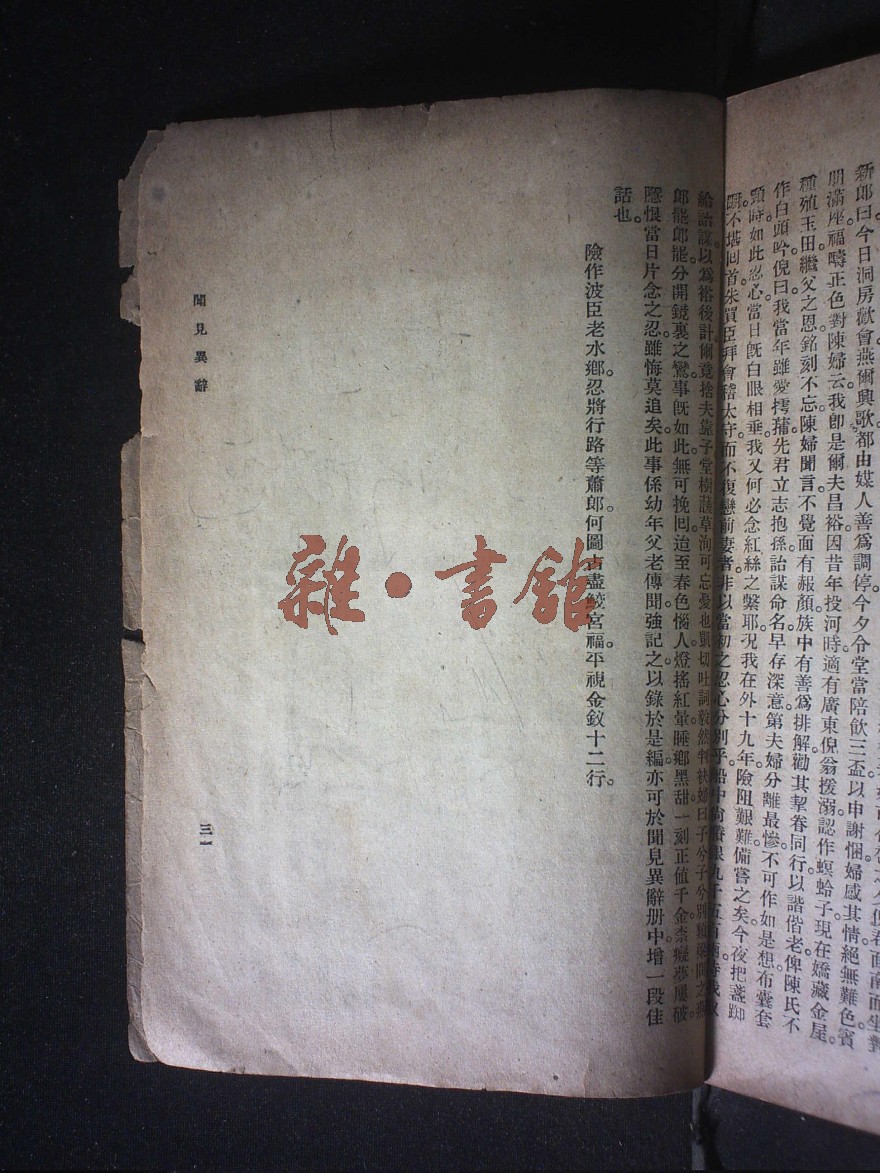 新郎曰今日洞房歡會燕爾興歌。都由媒人善爲調停今夕分堂當陪飲三盃以申謝悃婦感其情絕無難色賓
朋滿座福疇正色對陳婦云我卽是爾夫昌裕。因昔年投河時適有廣東倪翁援溺認作螟蛉子現在嬌藏金屋。
種殖玉田繼父之恩銘刻不忘陳婦聞言不覺面有赧顏族中有善爲排解勸其挈眷同行以諧偕老俾陳氏不
作白頭吟倪曰我當年雖愛摴蒱先君立志抱孫詒謀命名早存深意第夫婦分離最慘不可作如是想布囊套
頸時如此忍心當日旣白眼相垂我又何必念紅絲之繫耶況我在外十九年險阻艱難備嘗之矣今夜把盞踟
躕不堪回首朱買臣拜會稽太守而不復戀前妻者非以當初之忍心分別乎船中尚
給詒謀以爲裕後計爾竟捨夫靠子堂樹萱草洵可忘憂也凱切吐詞毅然
郎罷郎罷分開鏡裏之鸞事旣如此無可挽囘迨至春色惱人燈搖紅暈睡鄉黑甜一刻正値千金柰癡夢屢破
隱恨當日片念之忍雖悔莫追矣此事係幼年父老傳聞強記之以錄於是編亦可於聞見異辭册中增一段佳
話也。
險作波臣老水鄉。忍將行路等蕭郎。何圖古盡鮫宮福。平視金釵十二行。
聞見異辭
三一
雜·書館